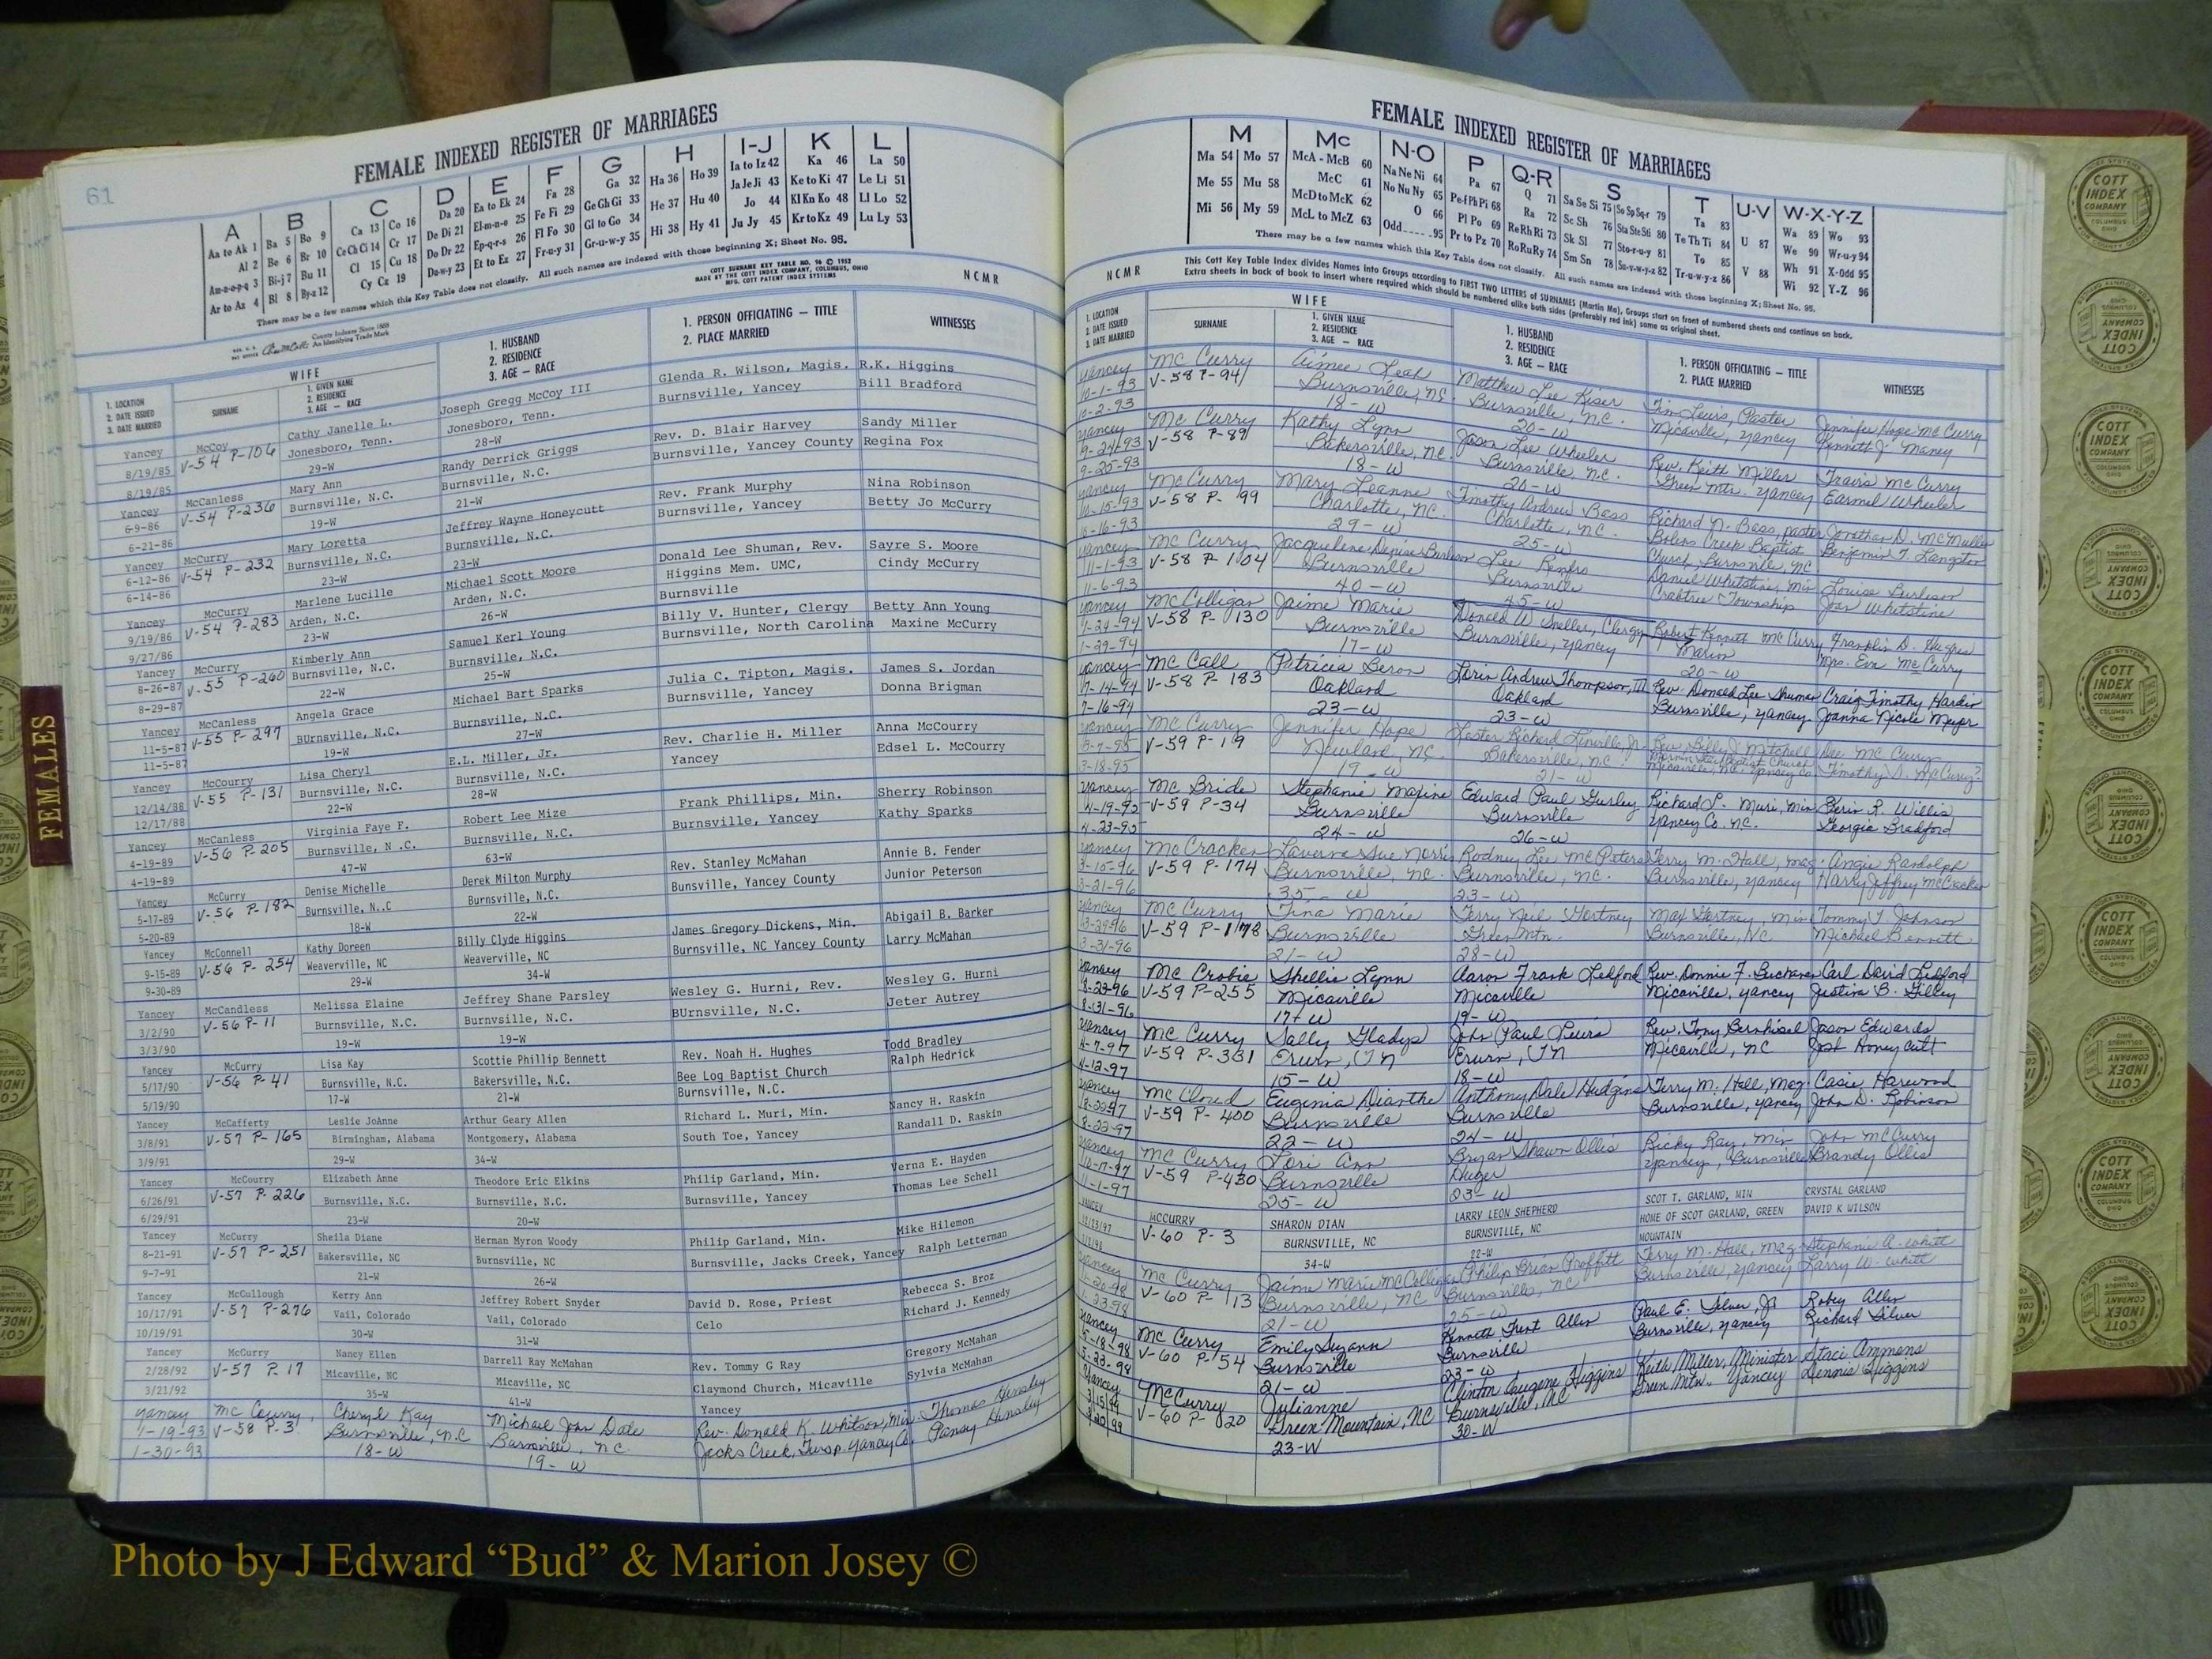 61
FEMALE INDEXED REGISTER OF MARRIAGES
A B C D E F G H I-J K L
Aa to Ak 1 Ba 5 Bo 9 Ca 13 Co 16 Da 20 Ea to Ek 24 Fa 28 Ga 32 Ha 36 Ho 39 Ia to Iz 42 Ka 46 La 50
Al 2 Be 6 Br 10 Ce Ch Ci 14 Cr 17 De Di 21 El-m-n-o 25 Fe Fi 29 Ge Gh Gi 33 He 37 Hu 40 Ja Je Ji 43 Ke to Ki 47 Le Li 51
Am-n-o-p-q 3 Bi-j 7 Bu 11 Cl 15 Cu 18 Do Dr 22 Ep-q-r-s 26 Fl Fo 30 Gl to Go 34 Hi 38 Hy 41 Jo 44 Kl Kn Ko 48 Ll Lo 52
Ar to Az 4 Bl 8 By-z 12 Cy Cz 19 Du-w-y 23 Et to Ez 27 Fr-u-y 31 Gr-u-w-y 35 Ju Jy 45 Kr to Kz 49 Lu Ly 53
There may be a few names which this Key Table does not classify. All such names are indexed with those beginning X; Sheet No. 95.
County Indexes Since 1888
An Identifying Trade Mark
COTT SURNAME KEY TABLE NO. 96 © 1952
MADE BY THE COTT INDEX COMPANY, COLUMBUS, OHIO
MFG. COTT PATENT INDEX SYSTEMS
NCMR
1. LOCATION
2. DATE ISSUED
3. DATE MARRIED
WIFE
SURNAME
1. GIVEN NAME
2. RESIDENCE
3. AGE — RACE
1. HUSBAND
2. RESIDENCE
3. AGE — RACE
1. PERSON OFFICIATING — TITLE
2. PLACE MARRIED
WITNESSES
Yancey McCoy Cathy Janelle L. Joseph Gregg McCoy III Glenda R. Wilson, Magis. R.K. Higgins
8/19/85 V-54 P-106 Jonesboro, Tenn. Jonesboro, Tenn. Burnsville, Yancey Bill Bradford
8/19/85 29-W 28-W
Yancey McCanless Mary Ann Randy Derrick Griggs Rev. D. Blair Harvey Sandy Miller
6-9-86 V-54 P-236 Burnsville, N.C. Burnsville, N.C. Burnsville, Yancey County Regina Fox
6-21-86 19-W 21-W
Yancey McCurry Mary Loretta Jeffrey Wayne Honeycutt Rev. Frank Murphy Nina Robinson
6-12-86 V-54 P-232 Burnsville, N.C. Burnsville, N.C. Burnsville, Yancey Betty Jo McCurry
6-14-86 23-W 23-W
Yancey McCurry Marlene Lucille Michael Scott Moore Donald Lee Shuman, Rev. Sayre S. Moore
9/19/86 V-54 P-283 Arden, N.C. Arden, N.C. Higgins Mem. UMC, Cindy McCurry
9/27/86 23-W 26-W Burnsville
Yancey McCurry Kimberly Ann Samuel Kerl Young Billy V. Hunter, Clergy Betty Ann Young
8-26-87 V-55 P-260 Burnsville, N.C. Burnsville, N.C. Burnsville, North Carolina Maxine McCurry
8-29-87 22-W 25-W
Yancey McCanless Angela Grace Michael Bart Sparks Julia C. Tipton, Magis. James S. Jordan
11-5-87 V-55 P-297 BUrnsville, N.C. Burnsville, N.C. Burnsville, Yancey Donna Brigman
11-5-87 19-W 27-W
Yancey McCourry Lisa Cheryl E.L. Miller, Jr. Rev. Charlie H. Miller Anna McCourry
12/14/88 V-55 P-131 Burnsville, N.C. Burnsville, N.C. Yancey Edsel L. McCourry
12/17/88 22-W 28-W
Yancey McCanless Virginia Faye F. Robert Lee Mize Frank Phillips, Min. Sherry Robinson
4-19-89 V-56 P-205 Burnsville, N .C. Burnsville, N.C. Burnsville, Yancey Kathy Sparks
4-19-89 47-W 63-W
Yancey McCurry Denise Michelle Derek Milton Murphy Rev. Stanley McMahan Annie B. Fender
5-17-89 V-56 P-182 Burnsville, N..C Burnsville, N.C. Bunsville, Yancey County Junior Peterson
5-20-89 18-W 22-W
Yancey McConnell Kathy Doreen Billy Clyde Higgins James Gregory Dickens, Min. Abigail B. Barker
9-15-89 V-56 P-254 Weaverville, NC Weaverville, NC Burnsville, NC Yancey County Larry McMahan
9-30-89 29-W 34-W
Yancey McCandless Melissa Elaine Jeffrey Shane Parsley Wesley G. Hurni, Rev. Wesley G. Hurni
3/2/90 V-56 P-11 Burnsville, N.C. Burnvsille, N.C. BUrnsville, N.C. Jeter Autrey
3/3/90 19-W 19-W
Yancey McCurry Lisa Kay Scottie Phillip Bennett Rev. Noah H. Hughes Todd Bradley
5/17/90 V-56 P-41 Burnsville, N.C. Bakersville, N.C. Bee Log Baptist Church Ralph Hedrick
5/19/90 17-W 21-W Burnsville, N.C.
Yancey McCafferty Leslie JoAnne Arthur Geary Allen Richard L. Muri, Min. Nancy H. Raskin
3/8/91 V-57 P-165 Birmingham, Alabama Montgomery, Alabama South Toe, Yancey Randall D. Raskin
3/9/91 29-W 34-W
Yancey McCourry Elizabeth Anne Theodore Eric Elkins Philip Garland, Min. Verna E. Hayden
6/26/91 V-57 P-226 Burnsville, N.C. Burnsville, N.C. Burnsville, Yancey Thomas Lee Schell
6/29/91 23-W 20-W
Yancey McCurry Sheila Diane Herman Myron Woody Philip Garland, Min. Mike Hilemon
8-21-91 V-57 P-251 Bakersville, NC Burnsville, NC Burnsville, Jacks Creek, Yancey Ralph Letterman
9-7-91 21-W 26-W
Yancey McCullough Kerry Ann Jeffrey Robert Snyder David D. Rose, Priest Rebecca S. Broz
10/17/91 V-57 P-276 Vail, Colorado Vail, Colorado Celo Richard J. Kennedy
10/19/91 30-W 31-W
Yancey McCurry Nancy Ellen Darrell Ray McMahan Rev. Tommy G Ray Gregory McMahan
2/28/92 V-57 P.17 Micaville, NC Micaville, NC Claymond Church, Micaville Sylvia McMahan
3/21/92 35-W 41-W Yancey
Yancey McCurry, Cheryl Kay Michael Jon Dale Rev. Donald K. Whitson, Min Thomas Hensley
1-19-93 V-58 P.3 Burnsville, N.C Burnsville, N.C. Jacks Creek, Twsp. Yancey Co. Pansy Hensley
1-30-93 18-W 19-W
FEMALES
FEMALE INDEXED REGISTER OF MARRIAGES
M Mc N-O P Q-R S T U-V W-X-Y-Z
Ma 54 Mo 57 McA - McB 60 Na Ne Ni 64 Pa 67 Q 71 Sa Se Si 75 So Sp Sq-r 79 Ta 83 U 87 Wa 89 Wo 93
Me 55 Mu 58 McC 61 No Nu Ny 65 Pe-f Ph Pi 68 Ra 72 Sc Sh 76 Sta Ste Sti 80 Te Th Ti 84 V 88 We 90 Wr-u-y 94
Mi 56 My 59 McD to McK 62 O 66 Pl Po 69 Re Rh Ri 73 Sk Sl 77 Sto-r-u-y 81 To 85 Wh 91 X-Odd 95
McL to McZ 63 Odd 95 Pr to Pz 70 Ro Ru Ry 74 Sm Sn 78 Su-v-w-y-z 82 Tr-u-w-y-z 86 Wi 92 Y-Z 96
There may be a few names which this Key Table does not classify. All such names are indexed with those beginning X; Sheet No. 95.
NCMR
This Cott Key Table Index divides Names into Groups according to FIRST TWO LETTERS of SURNAMES (Martin Ma). Groups start on front of numbered sheets and continue on back.
Extra sheets in back of book to insert where required which should be numbered alike both sides (preferably red ink) same as original sheet.
1. LOCATION
2. DATE ISSUED
3. DATE MARRIED
WIFE
SURNAME
1. GIVEN NAME
2. RESIDENCE
3. AGE — RACE
1. HUSBAND
2. RESIDENCE
3. AGE — RACE
1. PERSON OFFICIATING — TITLE
2. PLACE MARRIED
WITNESSES
Yancey McCurry Aimee Leah Matthew Lee Kiser Tim Lewis, Pastor Jennifer Hope McCurry
10-1-93 V-58 P-94 Burnsville, NC. Burnsville, N.C. Micaville, Yancey Kenneth J. Maney
10-2-93 18-W 20-W
Yancey McCurry Kathy Lynn Jason Lee Wheeler Rev. Keith Miller Travis McCurry
9-24-93 V-58 P-89 Bakersville, NC. Burnsville, N.C. Green Mtn. Yancey Earmel Wheeler
9-25-93 18-W 20-W
Yancey McCurry Mary Leanne Timothy Andrew Bass Richard N. Bass, pastor Jonathan D. McMullen
10-15-93 V-58 P-99 Charlotte, NC. Charlotte, NC. Bolens Creek Baptist Benjamin T. Langston
10-16-93 29-W 25-W Church, Burnsville, NC
Yancey McCurry Jacquelene Denise Burleson Lee Renfro Daniel Whitstine, Min Louise Burleson
11-1-93 V-58 P-104 Burnsville Burnsville Crabtree Township Joan Whitstine
11-6-93 40-W 45-W
Yancey McColligan Jaime Marie Donald W Sneller, Clergy Robert Kenneth McCurry Franklin D. Hughes
1-24-94 V-58 P-130 Burnsville Burnsville, Yancey Marion Mrs. Eva McCurry
1-29-94 17-W 20-W
Yancey McCall Patricia Leron Lorin Andrew Thompson, III Rev. Donald Lee Shuman Craig Timothy Hardin
7-14-94 V-58 P-183 Oakland Oakland Burnsville, Yancey Joanna Nicole Meyer
7-16-94 23-W 23-W
Yancey McCurry Jennifer Hope Lester Richard Linville, Jr. Rev. Billy J. Mitchell Lee McCurry
3-7-95 V-59 P-19 Newland, NC. Bakersville, NC. Baptist Church Timothy D. McCurry
3-18-95 19-W 21-W Micaville, NC. Yancey Co.
Yancey McBride Stephanie Maxine Edward Paul Gurley Richard L. Muri, Min Berin R. Willis
4-19-95 V-59 P-34 Burnsville Burnsville Yancey Co. NC. Georgia Bradford
4-23-95 24-W 26-W
Yancey McCracken Laverne Sue Norris Rodney Lee McPeters Terry M. Hall, Mag. Angie Randolph
3-15-96 V-59 P-174 Burnsville, NC. Burnsville, NC. Burnsville, Yancey Harry Jeffrey McCracken
3-21-96 35-W 23-W
Yancey McCurry Tina Marie Terry Neil Hartney Max Hartney, Min Tommy T. Johnson
3-29-96 V-59 P-178 Burnsville Green Mtn. Burnsville, N.C. Michael Bennett
3-31-96 21-W 28-W
Yancey McCrobie Shellie Lynn Aaron Frank Ledford Rev. Donnie F. Buchanan Carl David Ledford
8-23-96 V-59 P-255 Micaville Micaville Micaville, Yancey Justina B. Gilley
8-31-96 17-W 19-W
Yancey McCurry Sally Gladys John Paul Peirs Rev. Tony Bernhisel Jason Edwards
4-7-97 V-59 P-331 Erwin, TN Erwin, TN Micaville, NC Josh Honeycutt
4-12-97 15-W 18-W
Yancey McCloud Eugenia Dianthe Anthony Dale Hudgins Terry M. Hall, Mag. Casie Harwood
8-22-97 V-59 P-400 Burnsville Burnsville Burnsville, Yancey John D. Robinson
8-22-97 22-W 24-W
Yancey McCurry Lori Ann Bryan Shawn Ollis Ricky Ray, Min John McCurry
10-17-97 V-59 P-430 Burnsville Yancey, Burnsville Brandy Ollis
11-1-97 25-W 23-W
YANCEY MCCURRY SHARON DIAN LARRY LEON SHEPHERD SCOT T. GARLAND, MIN CRYSTAL GARLAND
12/23/97 V-60 P-3 BURNSVILLE, NC BURNSVILLE, NC HOME OF SCOT GARLAND, GREEN DAVID K WILSON
34-W 22-W MOUNTAIN
Yancey McCurry Jaime Marie McColligan Philip Brian Proffitt Terry M. Hall, Mag Stephanie A. White
V-60 P-13 Burnsville, NC Burnsville, NC Burnsville, Yancey Larry W. White
1-23-98 21-W 25-W
Yancey McCurry Emily Suzann Kenneth Trent Allen Paul E. Silver, Jr Robey Allen
5-18-98 V-60 P-54 Burnsville Burnsville Burnsville, Yancey Richard Silver
5-23-98 21-W 23-W
Yancey McCurry Julianne Clinton Eugene Higgins Keith Miller, Minister Staci Ammons
3/15/99 V-60 P-120 Green Mountain, NC Burnsville, NC Green Mtn. Yancey Dennis Higgins
3/20/99 23-W 30-W
COTT INDEX COMPANY COLUMBUS OHIO
Photo by J Edward “Bud” & Marion Josey ©